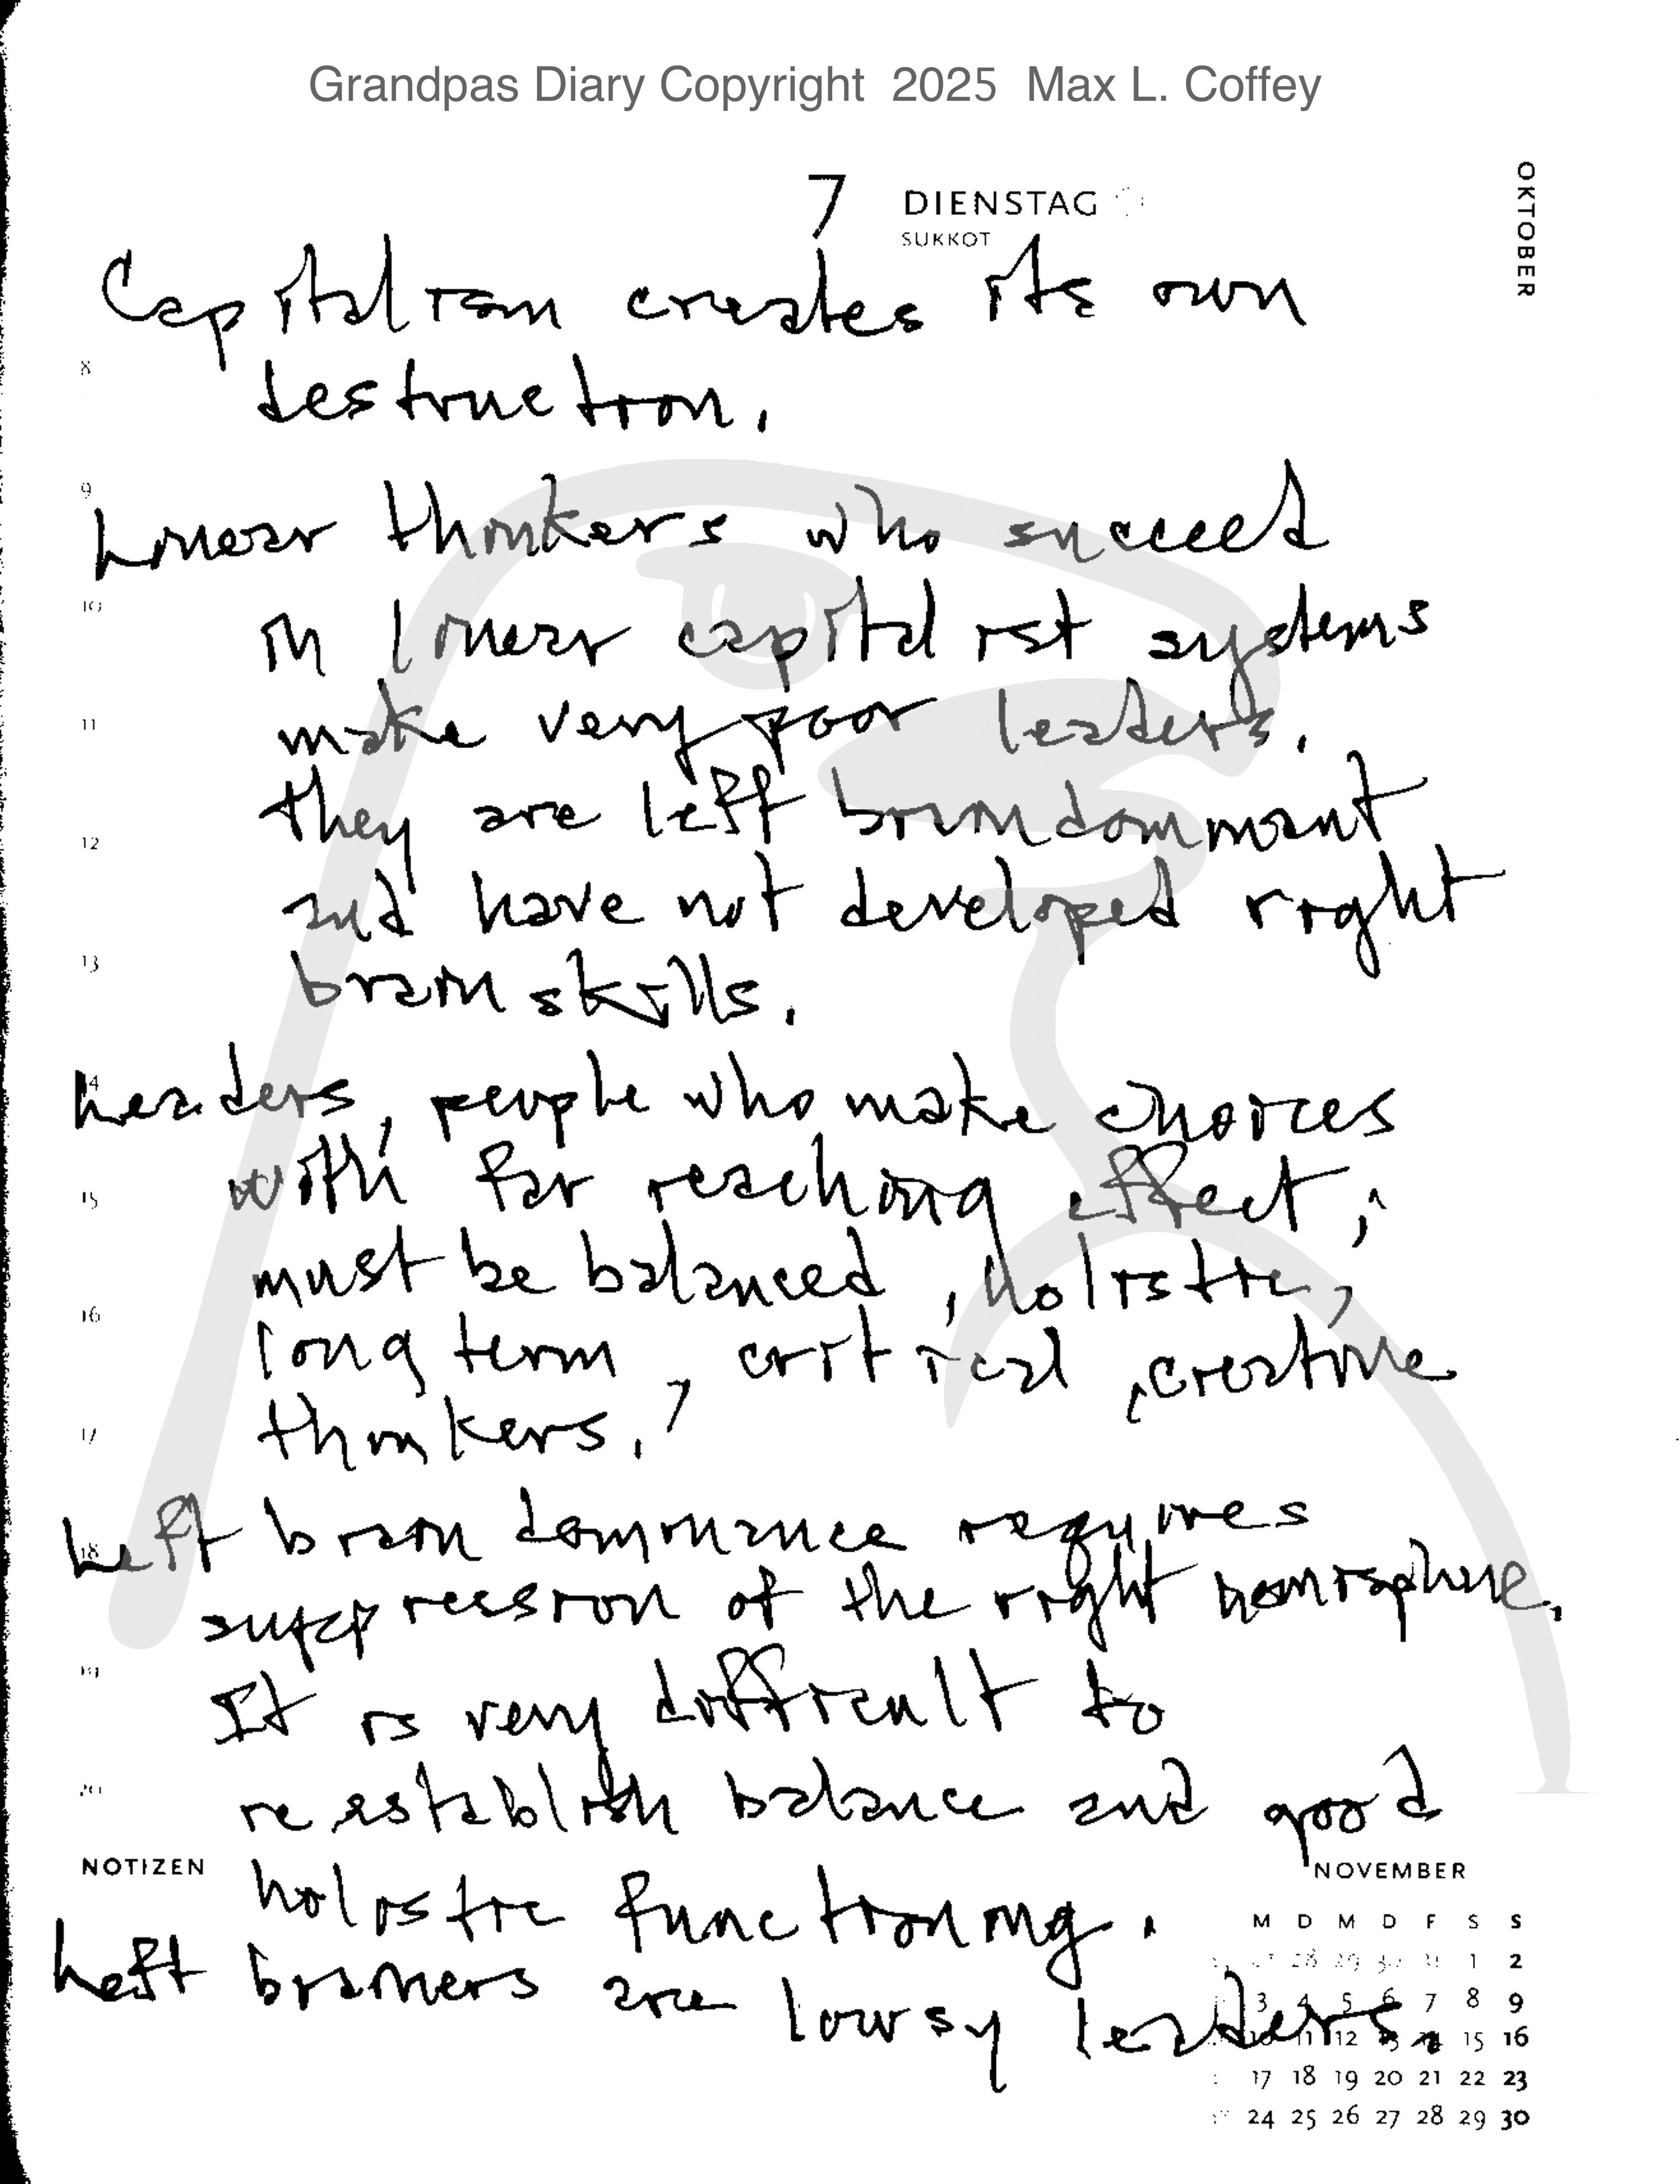 Grandpas Diary Copyright 2025 Max L. Coffey
OKTOBER
7 DIENSTAG
SUKKOT
Capitalism creates its own
8
destruction.
9
Linear thinkers who succeed
10
in linear capitalist systems
11
make very poor leaders.
they are left brain dominant
12
and have not developed right
13
brain skills.
14
Leaders, people who make choices
with far reaching effect,
15
must be balanced, holistic,
16
long term, critical, creative
17
thinkers.
Left brain dominance requires
18
suppression of the right hemisphere.
19
It is very difficult to
20
re establish balance and good
NOTIZEN
holistic functioning.
Left brainers are lousy leaders.
NOVEMBER
M D M D F S S
27 28 29 30 31 1 2
3 4 5 6 7 8 9
10 11 12 13 14 15 16
17 18 19 20 21 22 23
24 25 26 27 28 29 30